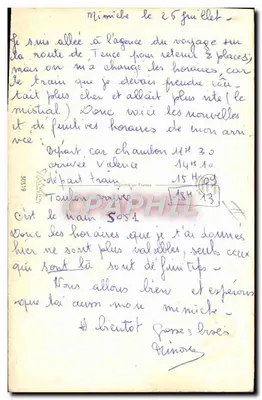 Miniche le 25 juillet.
Je suis allée à l'agence du voyage sur
la route de Tence pour retenir 2 places,
mais on m'a changé les horaires, car
le train que je devais prendre coû-
tait plus cher et allait plus vite (le
mistral) Donc voici les nouvelles
et définitives horaires de mon arri-
vée :
Départ car chambon 11H30
arrivée Valence 14H10
départ train 15H09
Toulon arrivée 13
C'est le train 5051
Donc les horaires que je t'ai donnés
hier ne sont plus valables, seuls ceux
qui sont là sont définitifs.
Nous allons bien et espérons
que toi aussi mon miniche.
A bientôt Grosses bises
PHILAPOSTEL